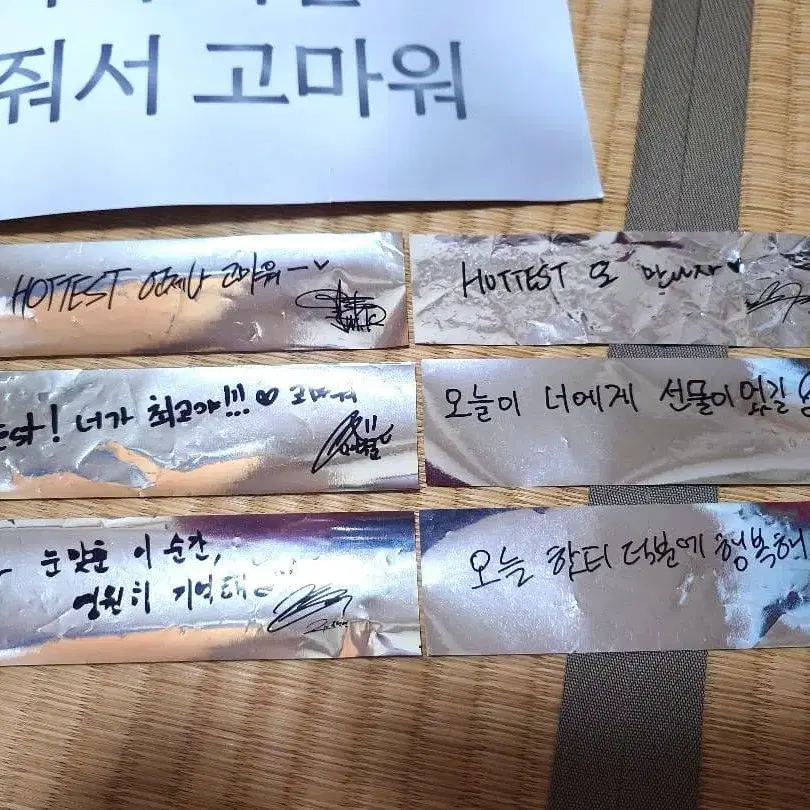 줘서 고마워
HOTTEST 언제나 고마워 ~♥
HOTTEST 또 만나자♥
est! 너가 최고야!!! ♡ 고마워
오늘이 너에게 선물이었길
눈맞춘 이 순간,
영원히 기억해♡
오늘 핫티 덕분에 행복해